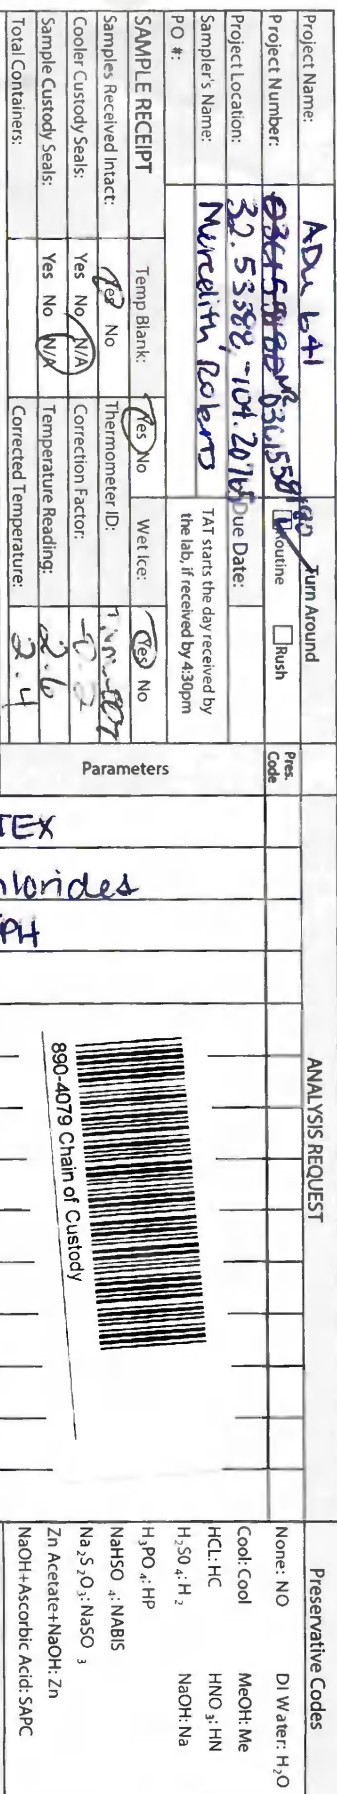 Project Name: ADU 641 Turn Around
Project Number: 03C1558180 Routine Rush Pres. Code
Project Location: 32.53588, -104.20765 Due Date:
Sampler's Name: Meredith Roberts TAT starts the day received by the lab, if received by 4:30pm
PO #:
SAMPLE RECEIPT Temp Blank: Yes No Wet Ice: Yes No
Samples Received Intact: Yes No Thermometer ID:
Cooler Custody Seals: Yes No N/A Correction Factor: -0.2
Sample Custody Seals: Yes No N/A Temperature Reading: 2.6
Total Containers: Corrected Temperature: 2.4
Parameters
TEX
hlorides
PH
ANALYSIS REQUEST
890-4079 Chain of Custody
Preservative Codes
None: NO DI Water: H2O
Cool: Cool MeOH: Me
HCL: HC HNO3: HN
H2SO4: H2 NaOH: Na
H3PO4: HP
NaHSO4: NABIS
Na2S2O3: NaSO3
Zn Acetate+NaOH: Zn
NaOH+Ascorbic Acid: SAPC